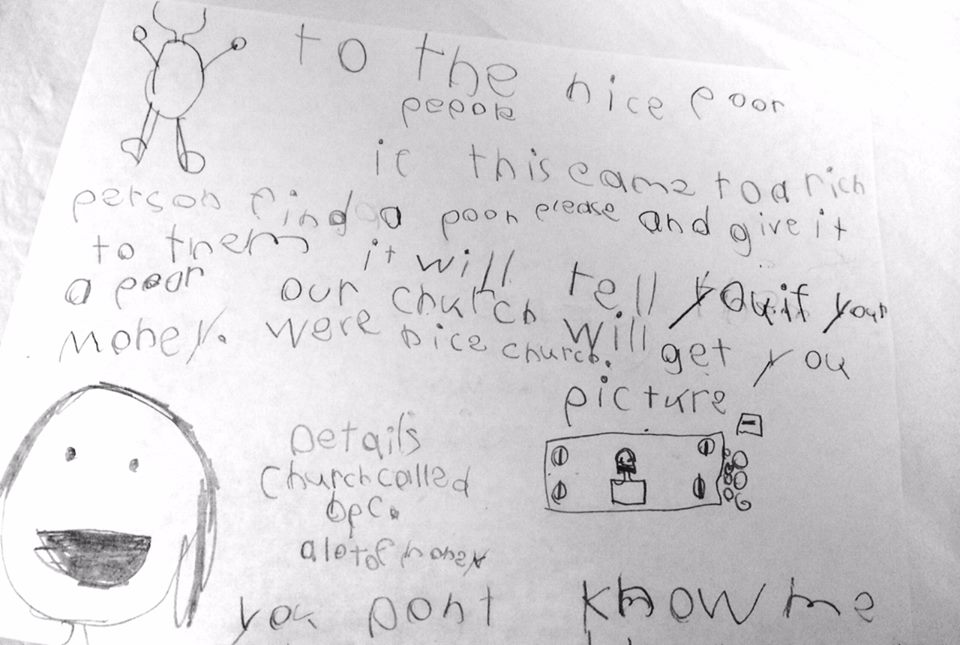 to the nice poor
pepole
if this came to a rich
person find a poor please and give it
to them it will tell you if your
a poor our church will get you
money. were nice church.
picture
Details
Church called
bpc.
a lot of money
you dont know me